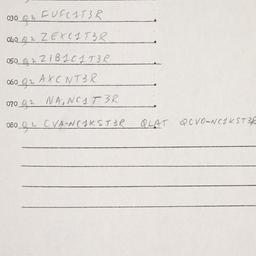 030 Q2 FUFC1T3R
040 Q2 ZEXC1T3R
050 Q2 ZIB1C1T3R
060 Q2 AXCNT3R
070 Q2 NA,NC1T3R
080 Q2 CVA-NC1KST3R QLAT QCVO-NC1KST3R